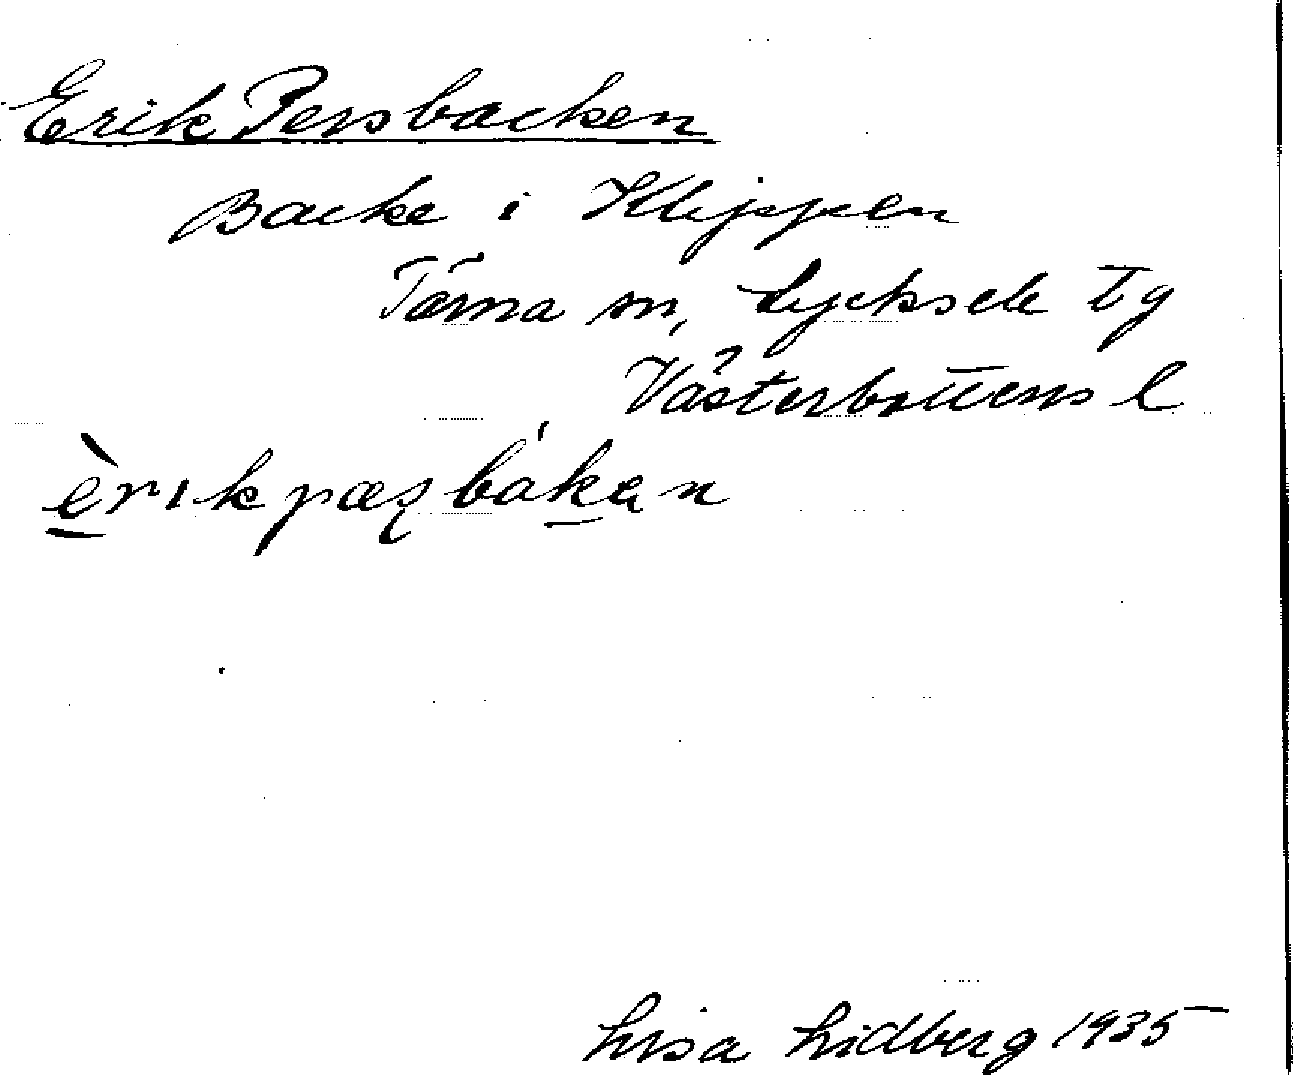 Erik Persbacken
Backe i Klippen
Tärna sn, Lycksele tg
Västerbottens l
èrik pæʂbákan
Lisa Lidberg 1935